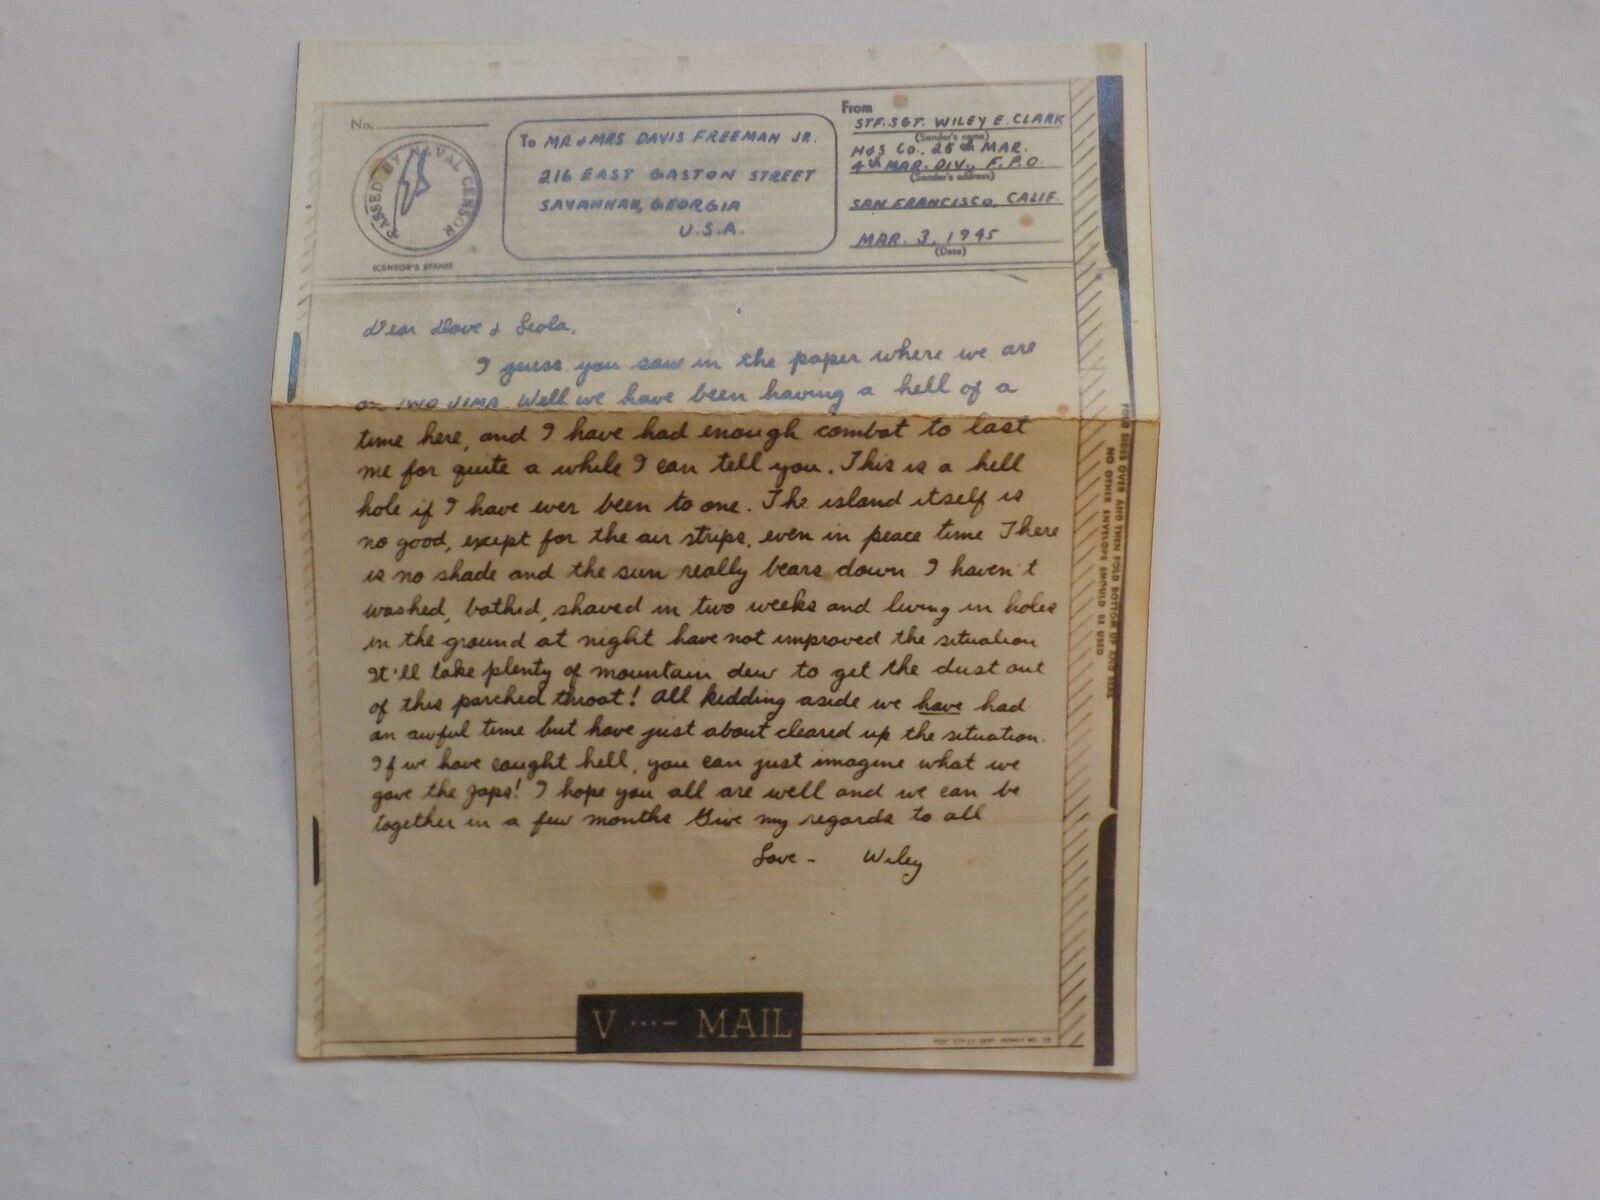 No.
PASSED BY NAVAL CENSOR
(CENSOR'S STAMP)
To MR & MRS DAVIS FREEMAN JR.
216 EAST GASTON STREET
SAVANNAH, GEORGIA
U.S.A.
From
STF. SGT. WILEY E. CLARK
(Sender's name)
H&S CO. 25th MAR.
4th MAR. DIV., F.P.O
(Sender's address)
SAN FRANCISCO, CALIF.
MAR. 3, 1945
(Date)
Dear Dave & Leola,
I guess you saw in the paper where we are
on IWO JIMA. Well we have been having a hell of a
time here, and I have had enough combat to last
me for quite a while I can tell you. This is a hell
hole if I have ever been to one. The island itself is
no good, except for the air strips, even in peace time There
is no shade and the sun really bears down. I haven't
washed, bathed, shaved in two weeks and living in holes
in the ground at night have not improved the situation
It'll take plenty of mountain dew to get the dust out
of this parched throat! All kidding aside we have had
an awful time but have just about cleared up the situation.
If we have caught hell, you can just imagine what we
gave the Japs! I hope you all are well and we can be
together in a few months Give my regards to all
Love - Wiley
V ···– MAIL
POST OFFICE DEPT. PERMIT NO.
FOLD SIDES OVER AND THEN FOLD BOTTOM UP AND SEAL
NO OTHER ENVELOPE SHOULD BE USED